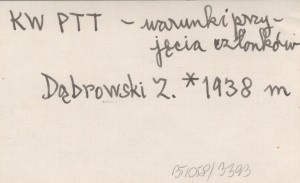 KW PTT - warunki przy-
jęcia członków
Dąbrowski Z. *1938 m
151058/3393